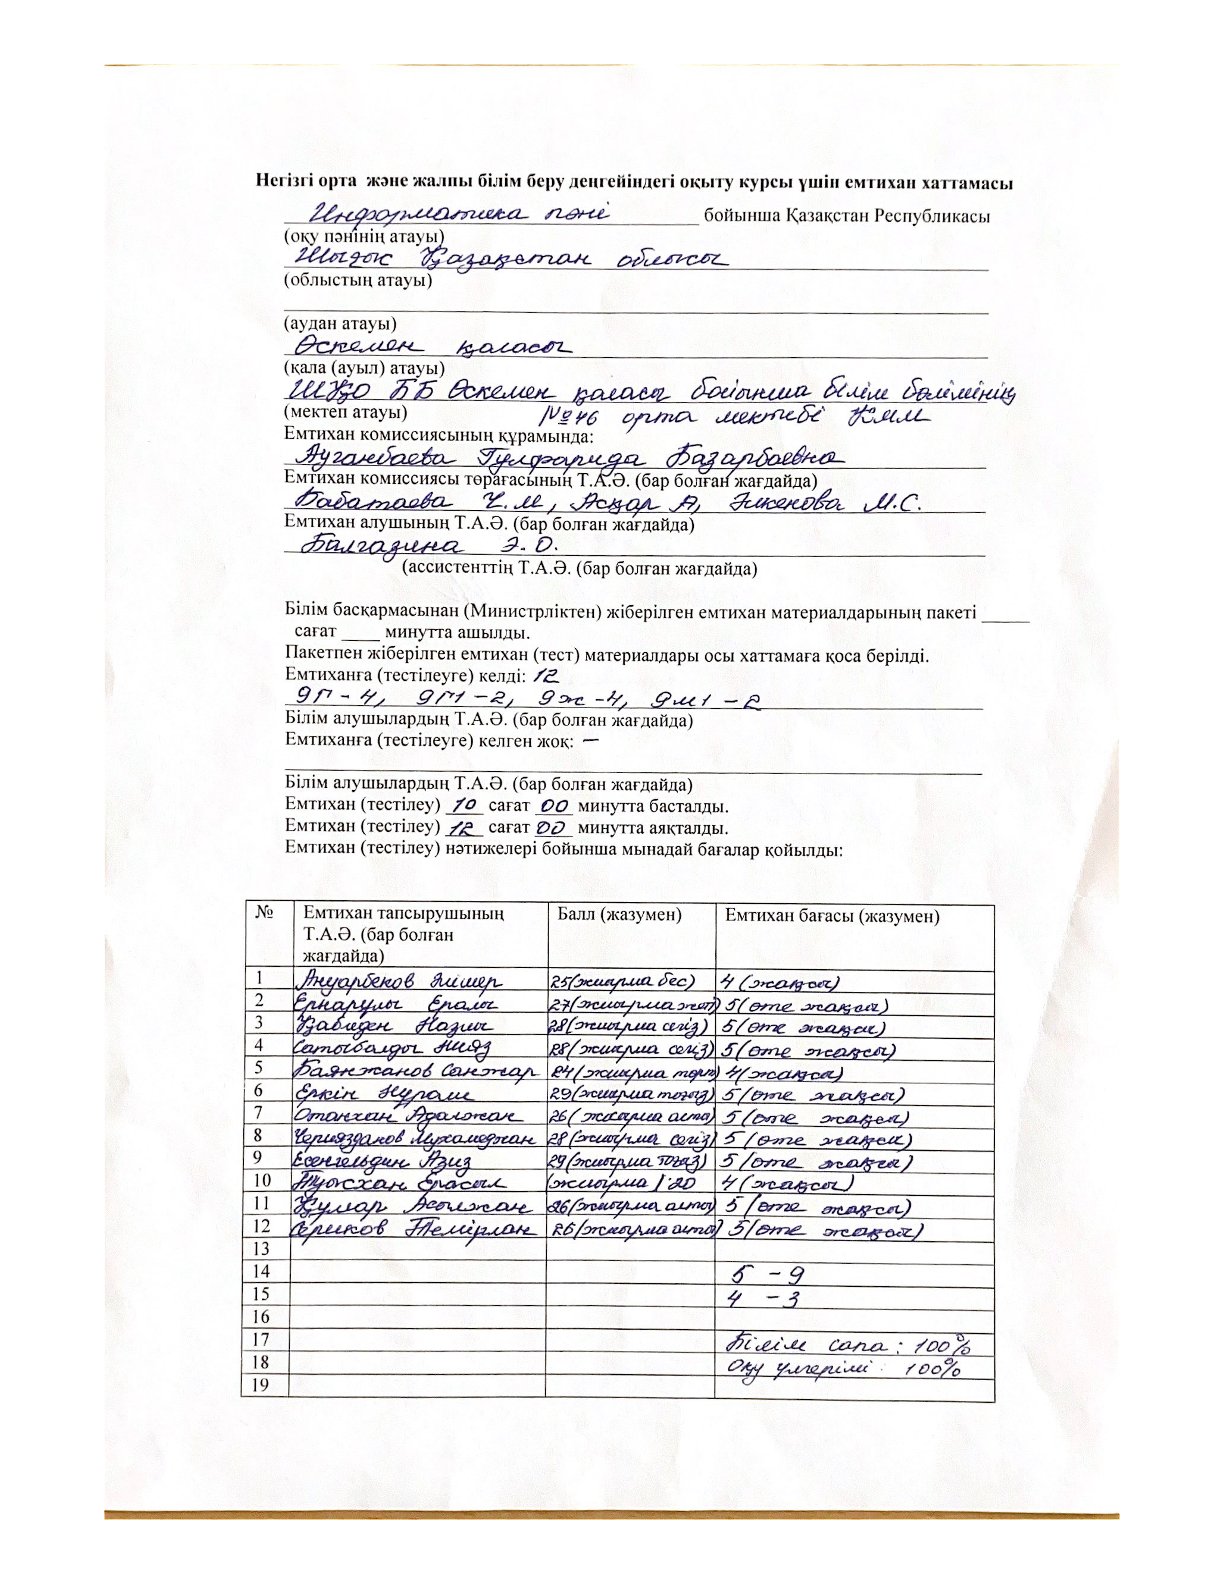 Негізгі орта және жалпы білім беру деңгейіндегі оқыту курсы үшін емтихан хаттамасы
Информатика пәні бойынша Қазақстан Республикасы
(оқу пәнінің атауы)
Шығыс Қазақстан облысы
(облыстың атауы)
(аудан атауы)
Өскемен қаласы
(қала (ауыл) атауы)
ШҚО ББ Өскемен қаласы бойынша білім бөлімінің
(мектеп атауы) №46 орта мектебі КММ
Емтихан комиссиясының құрамында:
Ауганбаева Гулфарида Базарбаевна
Емтихан комиссиясы төрағасының Т.А.Ә. (бар болған жағдайда)
Бабатаева Ч.М, Асқар А, Әкенова М.С.
Емтихан алушының Т.А.Ә. (бар болған жағдайда)
Балгазина Э.О.
(ассистенттің Т.А.Ә. (бар болған жағдайда)
Білім басқармасынан (Министрліктен) жіберілген емтихан материалдарының пакеті _____
сағат ____ минутта ашылды.
Пакетпен жіберілген емтихан (тест) материалдары осы хаттамаға қоса берілді.
Емтиханға (тестілеуге) келді: 12
9Г - 4, 9Г1 - 2, 9ж - 4, 9м1 - 2
Білім алушылардың Т.А.Ә. (бар болған жағдайда)
Емтиханға (тестілеуге) келген жоқ: —
Білім алушылардың Т.А.Ә. (бар болған жағдайда)
Емтихан (тестілеу) 10 сағат 00 минутта басталды.
Емтихан (тестілеу) 12 сағат 00 минутта аяқталды.
Емтихан (тестілеу) нәтижелері бойынша мынадай бағалар қойылды:
№ Емтихан тапсырушының Т.А.Ә. (бар болған жағдайда) Балл (жазумен) Емтихан бағасы (жазумен)
1 Ануарбеков 25(жиырма бес) 4 (жақсы)
2 Ернарулы Ералы 27(жиырма жеті) 5(өте жақсы)
3 Қабиден Назлы 28(жиырма сегіз) 5(өте жақсы)
4 Сатыбалды Нияз 28(жиырма сегіз) 5(өте жақсы)
5 Баянжанов Санжар 24(жиырма төрт) 4(жақсы)
6 Еркін Нұрали 29(жиырма тоғыз) 5(өте жақсы)
7 Отанхан Адалжан 26(жиырма алты) 5(өте жақсы)
8 Мухамеджан 28(жиырма сегіз) 5(өте жақсы)
9 Есенгельдин Азиз 29(жиырма тоғыз) 5(өте жақсы)
10 Ерасыл (жиырма) 20 4(жақсы)
11 Құмар Асылжан 26(жиырма алты) 5(өте жақсы)
12 Сериков Темірлан 26(жиырма алты) 5(өте жақсы)
13
14 5 - 9
15 4 - 3
16
17 Білім сапа: 100%
18 Оқу үлгерімі: 100%
19